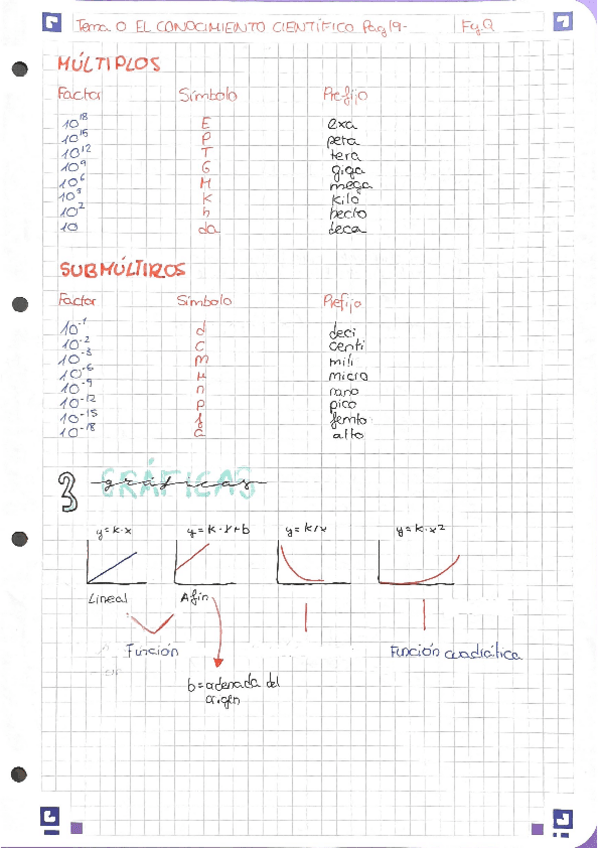 Tema 0 EL CONOCIMIENTO CIENTÍFICO Pag 19- FyQ
MÚLTIPLOS
Factor Símbolo Prefijo
10¹⁸ E exa
10¹⁵ P peta
10¹² T tera
10⁹ G giga
10⁶ M mega
10³ K kilo
10² h hecto
10 da deca
SUBMÚLTIPLOS
Factor Símbolo Prefijo
10⁻¹ d deci
10⁻² c centi
10⁻³ m mili
10⁻⁶ μ micro
10⁻⁹ n nano
10⁻¹² p pico
10⁻¹⁵ f femto
10⁻¹⁸ a atto
3 GRÁFICAS
gráficas
y=K·x y=K·x+b y=K/x y=K·x²
Lineal Afín
Función Función cuadrática
b=ordenada del
origen